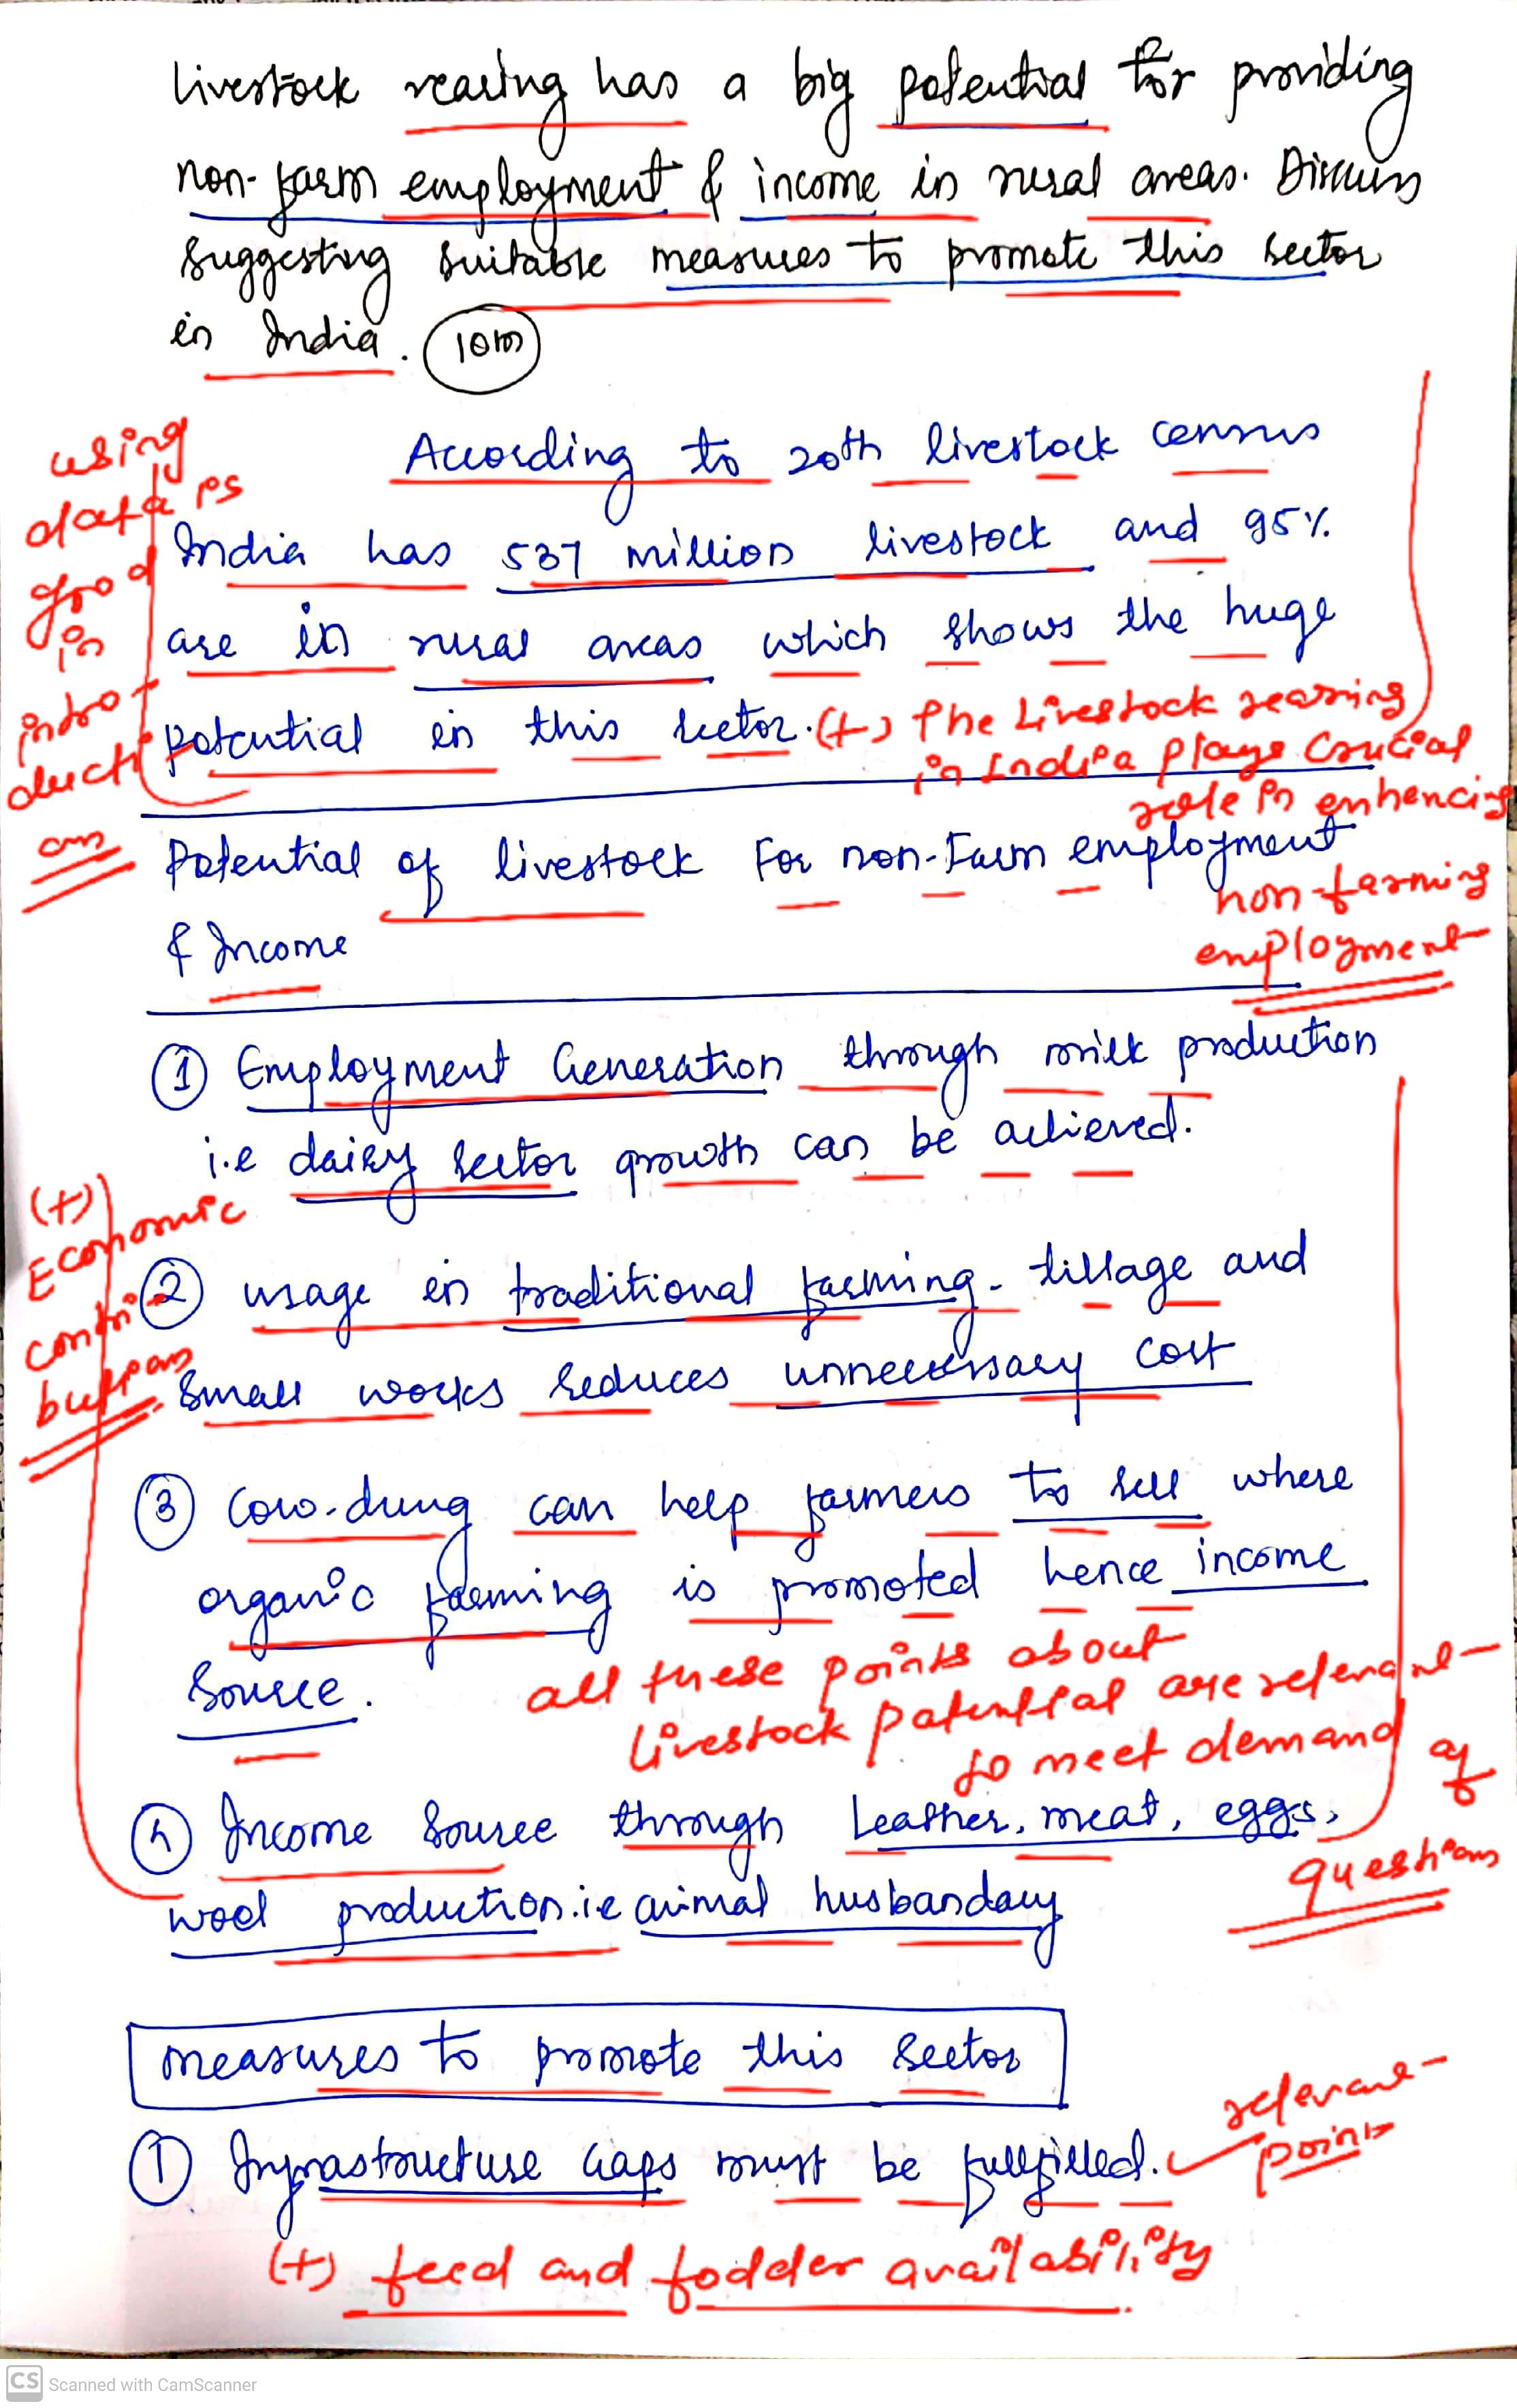 livestock rearing has a big potential for providing
non-farm employment & income in rural areas. Discuss
suggesting suitable measures to promote this sector
in India. 10m
using
data is
good
in
intro-
ducti
on
According to 20th livestock census
India has 537 million livestock and 95%
are in rural areas which shows the huge
potential in this sector.
(+) the Livestock rearing
in India plays crucial
role in enhencing
non-farming
employment
Potential of livestock For non-Farm employment
& Income
① Employment Generation through milk production
i.e dairy sector growth can be achieved.
(+)
Economic
contri-
bution
② usage in traditional farming - tillage and
small works reduces unnecessary cost
③ Cow-dung can help farmers to sell where
organic farming is promoted hence income
source.
all these points about
livestock potential are relevant
to meet demand of
question
④ Income source through Leather, meat, eggs,
wool production.i.e animal husbandary
measures to promote this sector
① Infrastructure Gaps must be fullfilled.
relevant
point
(+) feed and fodder availability
CS Scanned with CamScanner